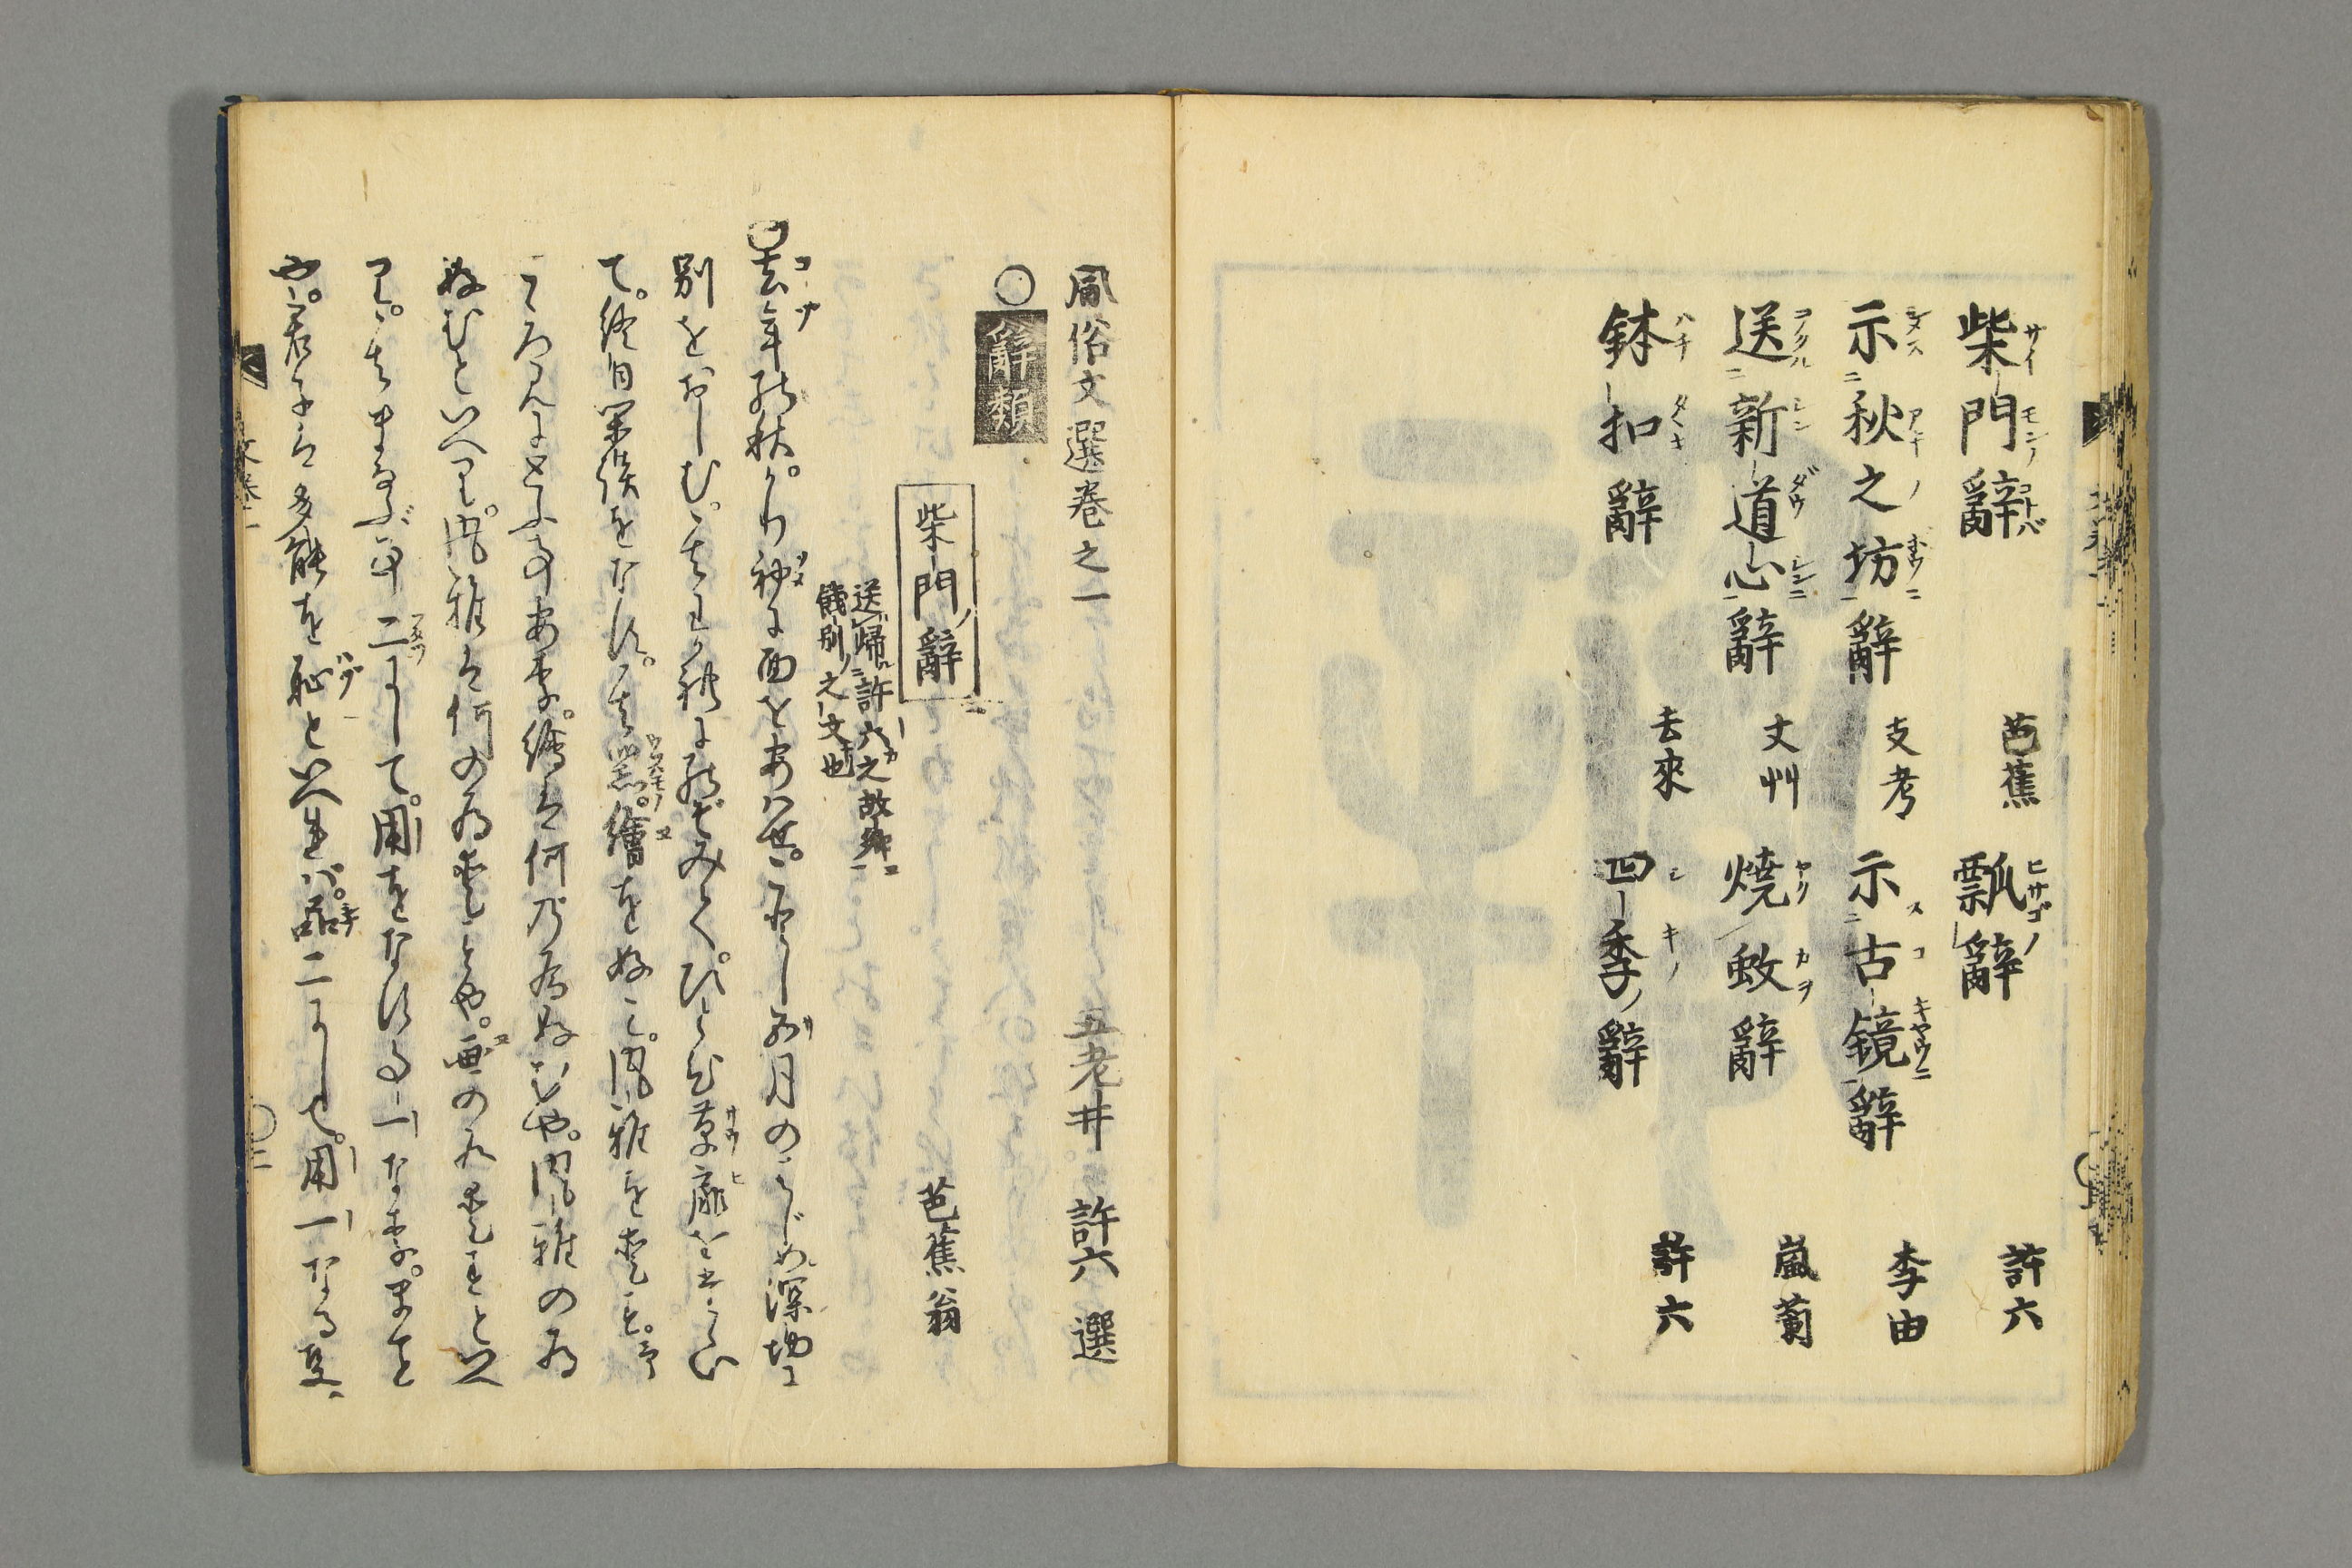 柴門辭 芭蕉 瓢辭 許六
示秋之坊辭 支考 示古鏡辭 李由
送新道心辭 丈艸 燒蚊辭 嵐蘭
鉢扣辭 去來 四季ノ辭 許六
風俗文選巻之一 五老井 許六 選
○辭類
柴門ノ辭 芭蕉翁
送帰許六之故郷
餞別ノ之文也
去年の秋。かり初に面をあハせ。ことし五月のはじめ。深切に
別をおしむ。其わかれにのぞみて。ひとひ草扉をたゝい
て。終日閑談をなす。其器。繪を好ミ。風雅を愛す。予
こゝろみにとふ事あり。繪は何の為好むや。風雅の為
好むといへり。風雅は何の為愛すや。画の為愛すといへ
り。其まなぶ事二にして。用をなす事一なり。まことや。
君子は多能を恥といへれバ。品二にして。用一なる事